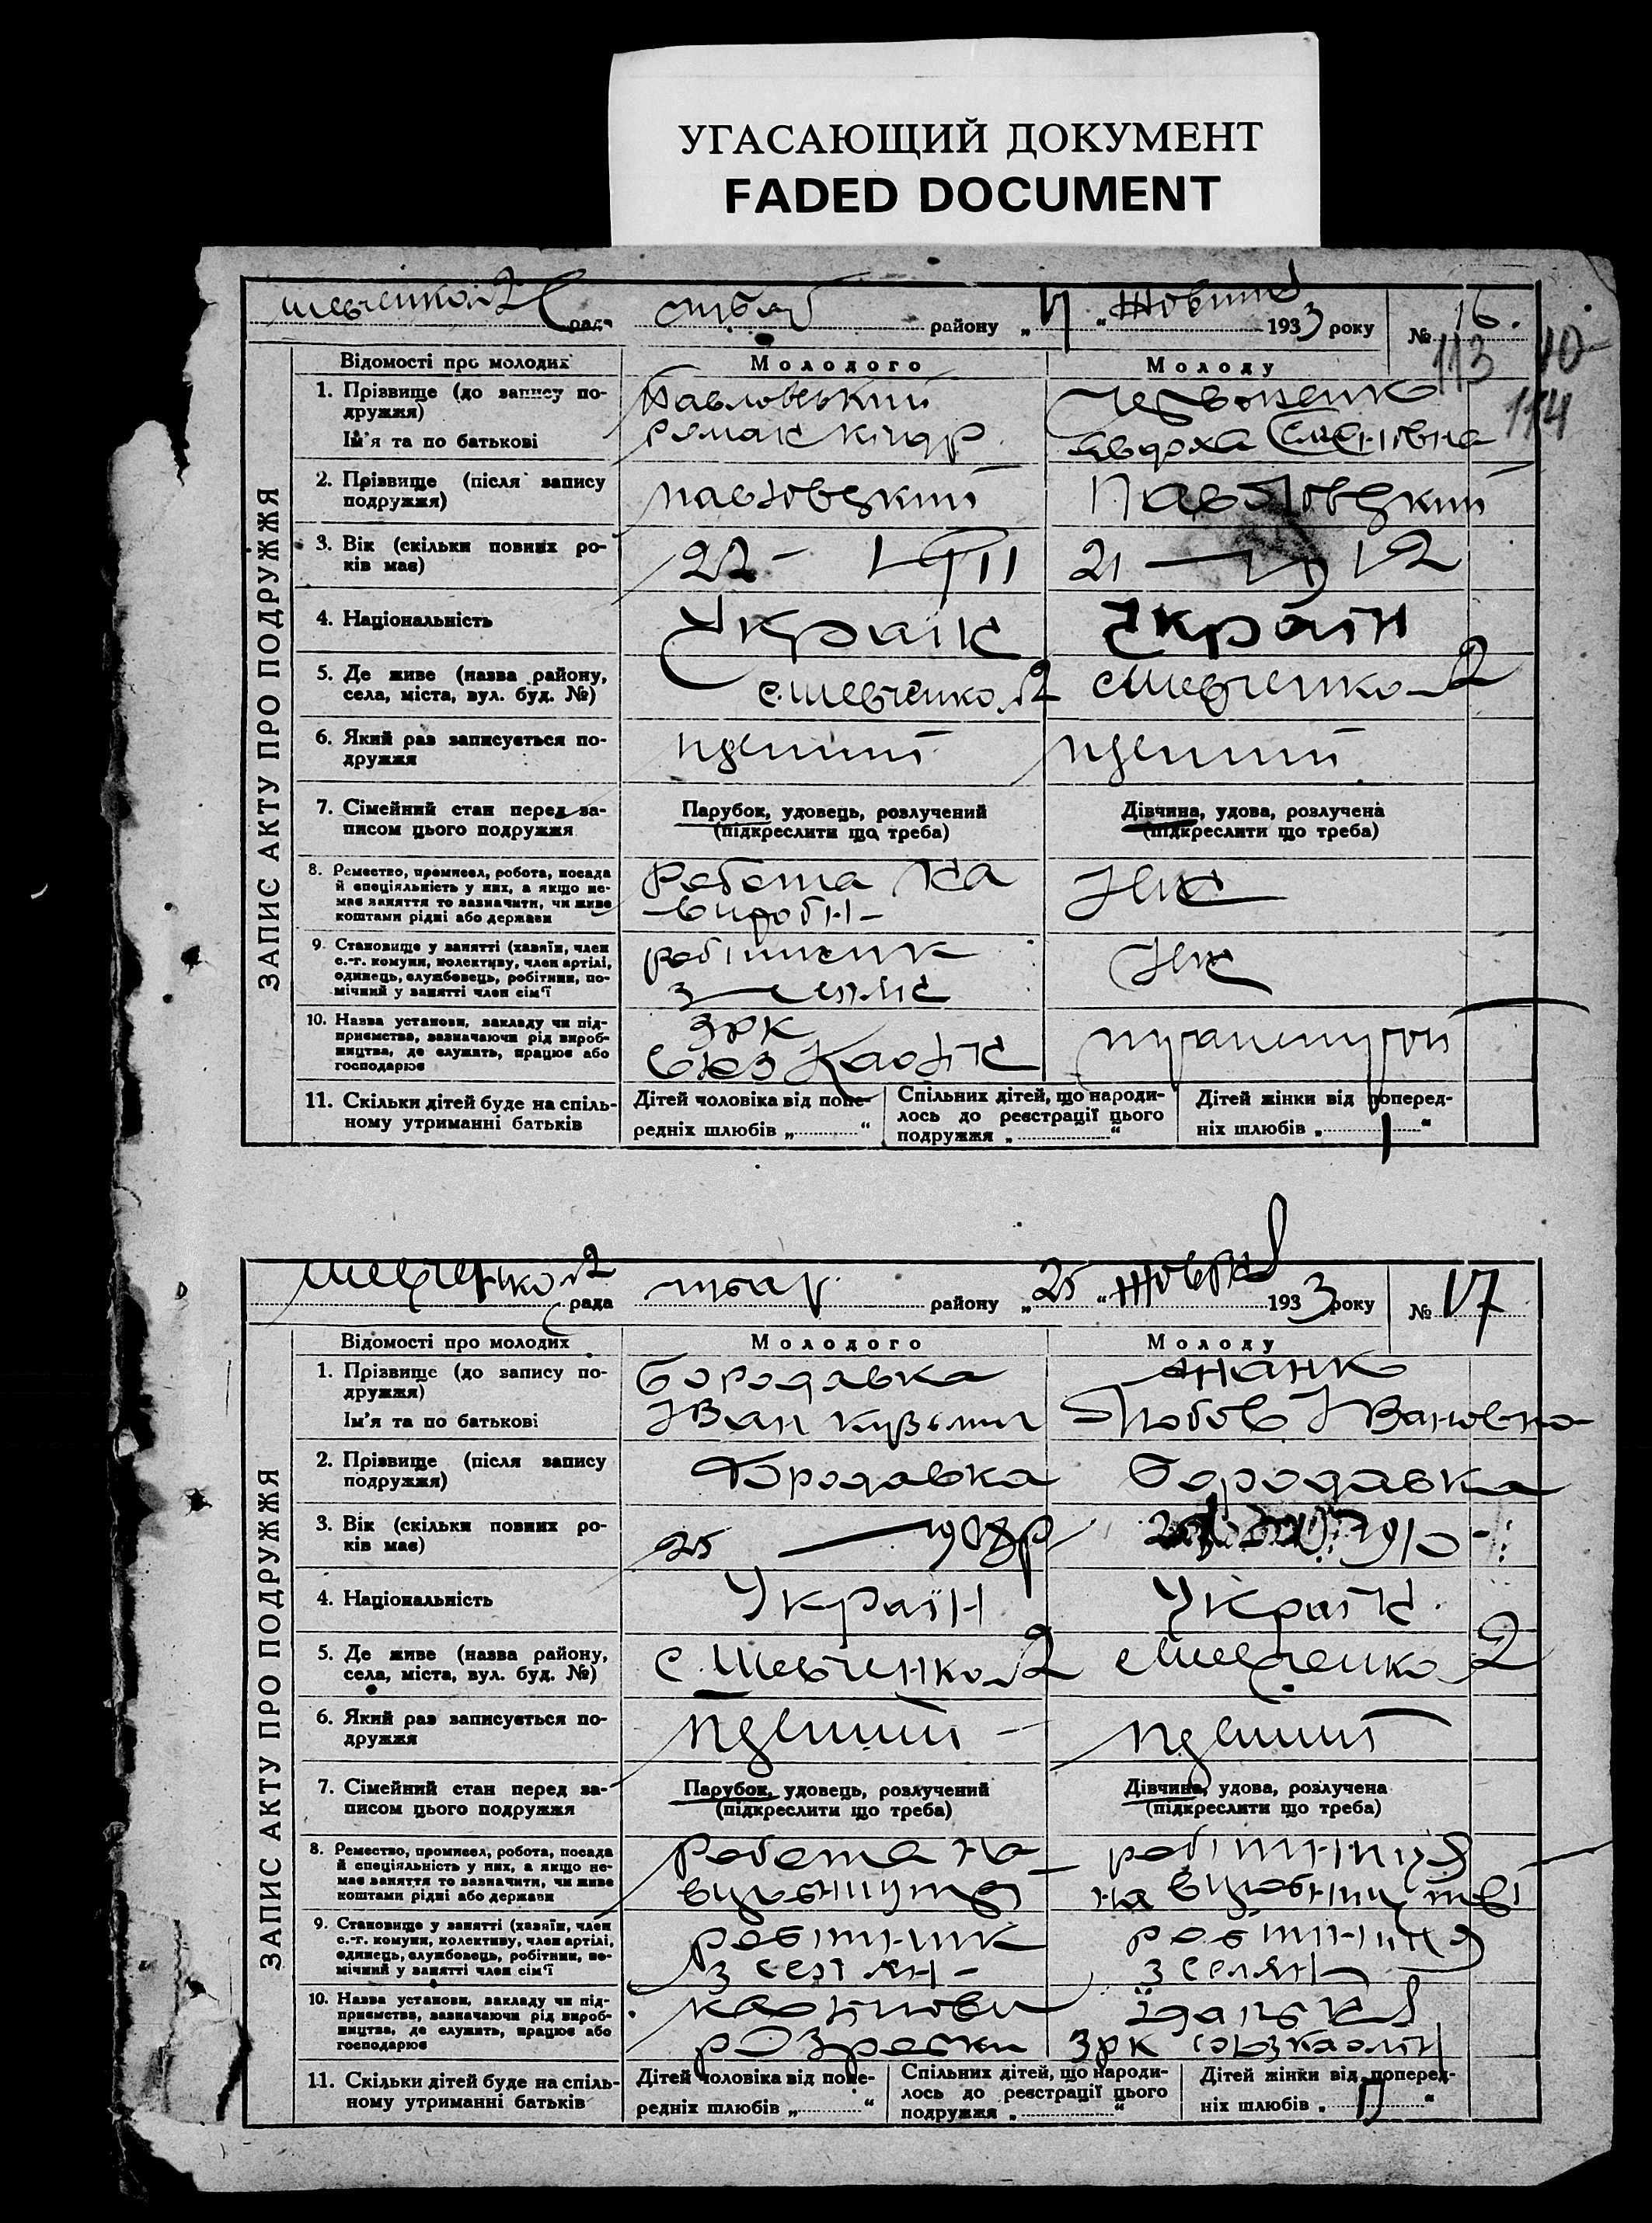 УГАСАЮЩИЙ ДОКУМЕНТ
FADED DOCUMENT
рада району „ “ 1933 року № 16.
113
114
ЗАПИС АКТУ ПРО ПОДРУЖЖЯ
Відомості про молодих Молодого Молоду
1. Прізвище (до запису по-
дружжя)
Ім'я та по батькові
Павловський
Роман
Явдоха
2. Прізвище (після запису
подружжя)
Павловський Павловський
3. Вік (скільки повних ро-
ків має)
22 – 1911 21 — 1912
4. Національність
Україн Україн
5. Де живе (назва району,
села, міста, вул. буд. №)
с. Шевченко 2 с Шевченко 2
6. Який раз записується по-
дружжя
перший перший
7. Сімейний стан перед за-
писом цього подружжя
Парубок, удовець, розлучений
(підкреслити що треба)
Дівчина, удова, розлучена
(підкреслити що треба)
8. Ремество, промисел, робота, посада
й спеціяльність у них, а якщо не-
має заняття то зазначити, чи живе
коштами рідні або держави
Робота на
виробн–
9. Становище у занятті (хазяїн, член
с.-г. комуни, колективу, член артілі,
одинець, службовець, робітник, по-
мічний у занятті член сім'ї
робітник
з селян
10. Назва установи, закладу чи під-
приємства, зазначаючи рід вироб-
ництва, де служить, працює або
господарює
ЗРК
Союз Каолін
11. Скільки дітей буде на спіль-
ному утриманні батьків
Дітей чоловіка від попе-
редніх шлюбів „ “
Спільних дітей, що народи-
лось до реєстрації цього
подружжя „ “
Дітей жінки від поперед-
ніх шлюбів „ “
Шевченко 2 рада району „25“ Жовтня 1933 року № 17
ЗАПИС АКТУ ПРО ПОДРУЖЖЯ
Відомості про молодих Молодого Молоду
1. Прізвище (до запису по-
дружжя)
Ім'я та по батькові
Бородавка
Іван Кузьмич
Любов Івановна
2. Прізвище (після запису
подружжя)
Бородавка Бородавка
3. Вік (скільки повних ро-
ків має)
25 — 1908р 1910
4. Національність
Україн Україн.
5. Де живе (назва району,
села, міста, вул. буд. №)
с. Шевченко 2 с Шевченко 2
6. Який раз записується по-
дружжя
перший – перший
7. Сімейний стан перед за-
писом цього подружжя
Парубок, удовець, розлучений
(підкреслити що треба)
Дівчина, удова, розлучена
(підкреслити що треба)
8. Ремество, промисел, робота, посада
й спеціяльність у них, а якщо не-
має заняття то зазначити, чи живе
коштами рідні або держави
Робота на
виробництві
робітниця
на виробництві
9. Становище у занятті (хазяїн, член
с.-г. комуни, колективу, член артілі,
одинець, службовець, робітник, по-
мічний у занятті член сім'ї
робітник
з селян –
робітниця
з селян
10. Назва установи, закладу чи під-
приємства, зазначаючи рід вироб-
ництва, де служить, працює або
господарює
каолінові
розробки
їдальня
ЗРК союзкаолін
11. Скільки дітей буде на спіль-
ному утриманні батьків
Дітей чоловіка від попе-
редніх шлюбів „ “
Спільних дітей, що народи-
лось до реєстрації цього
подружжя „ “
Дітей жінки від поперед-
ніх шлюбів „ “